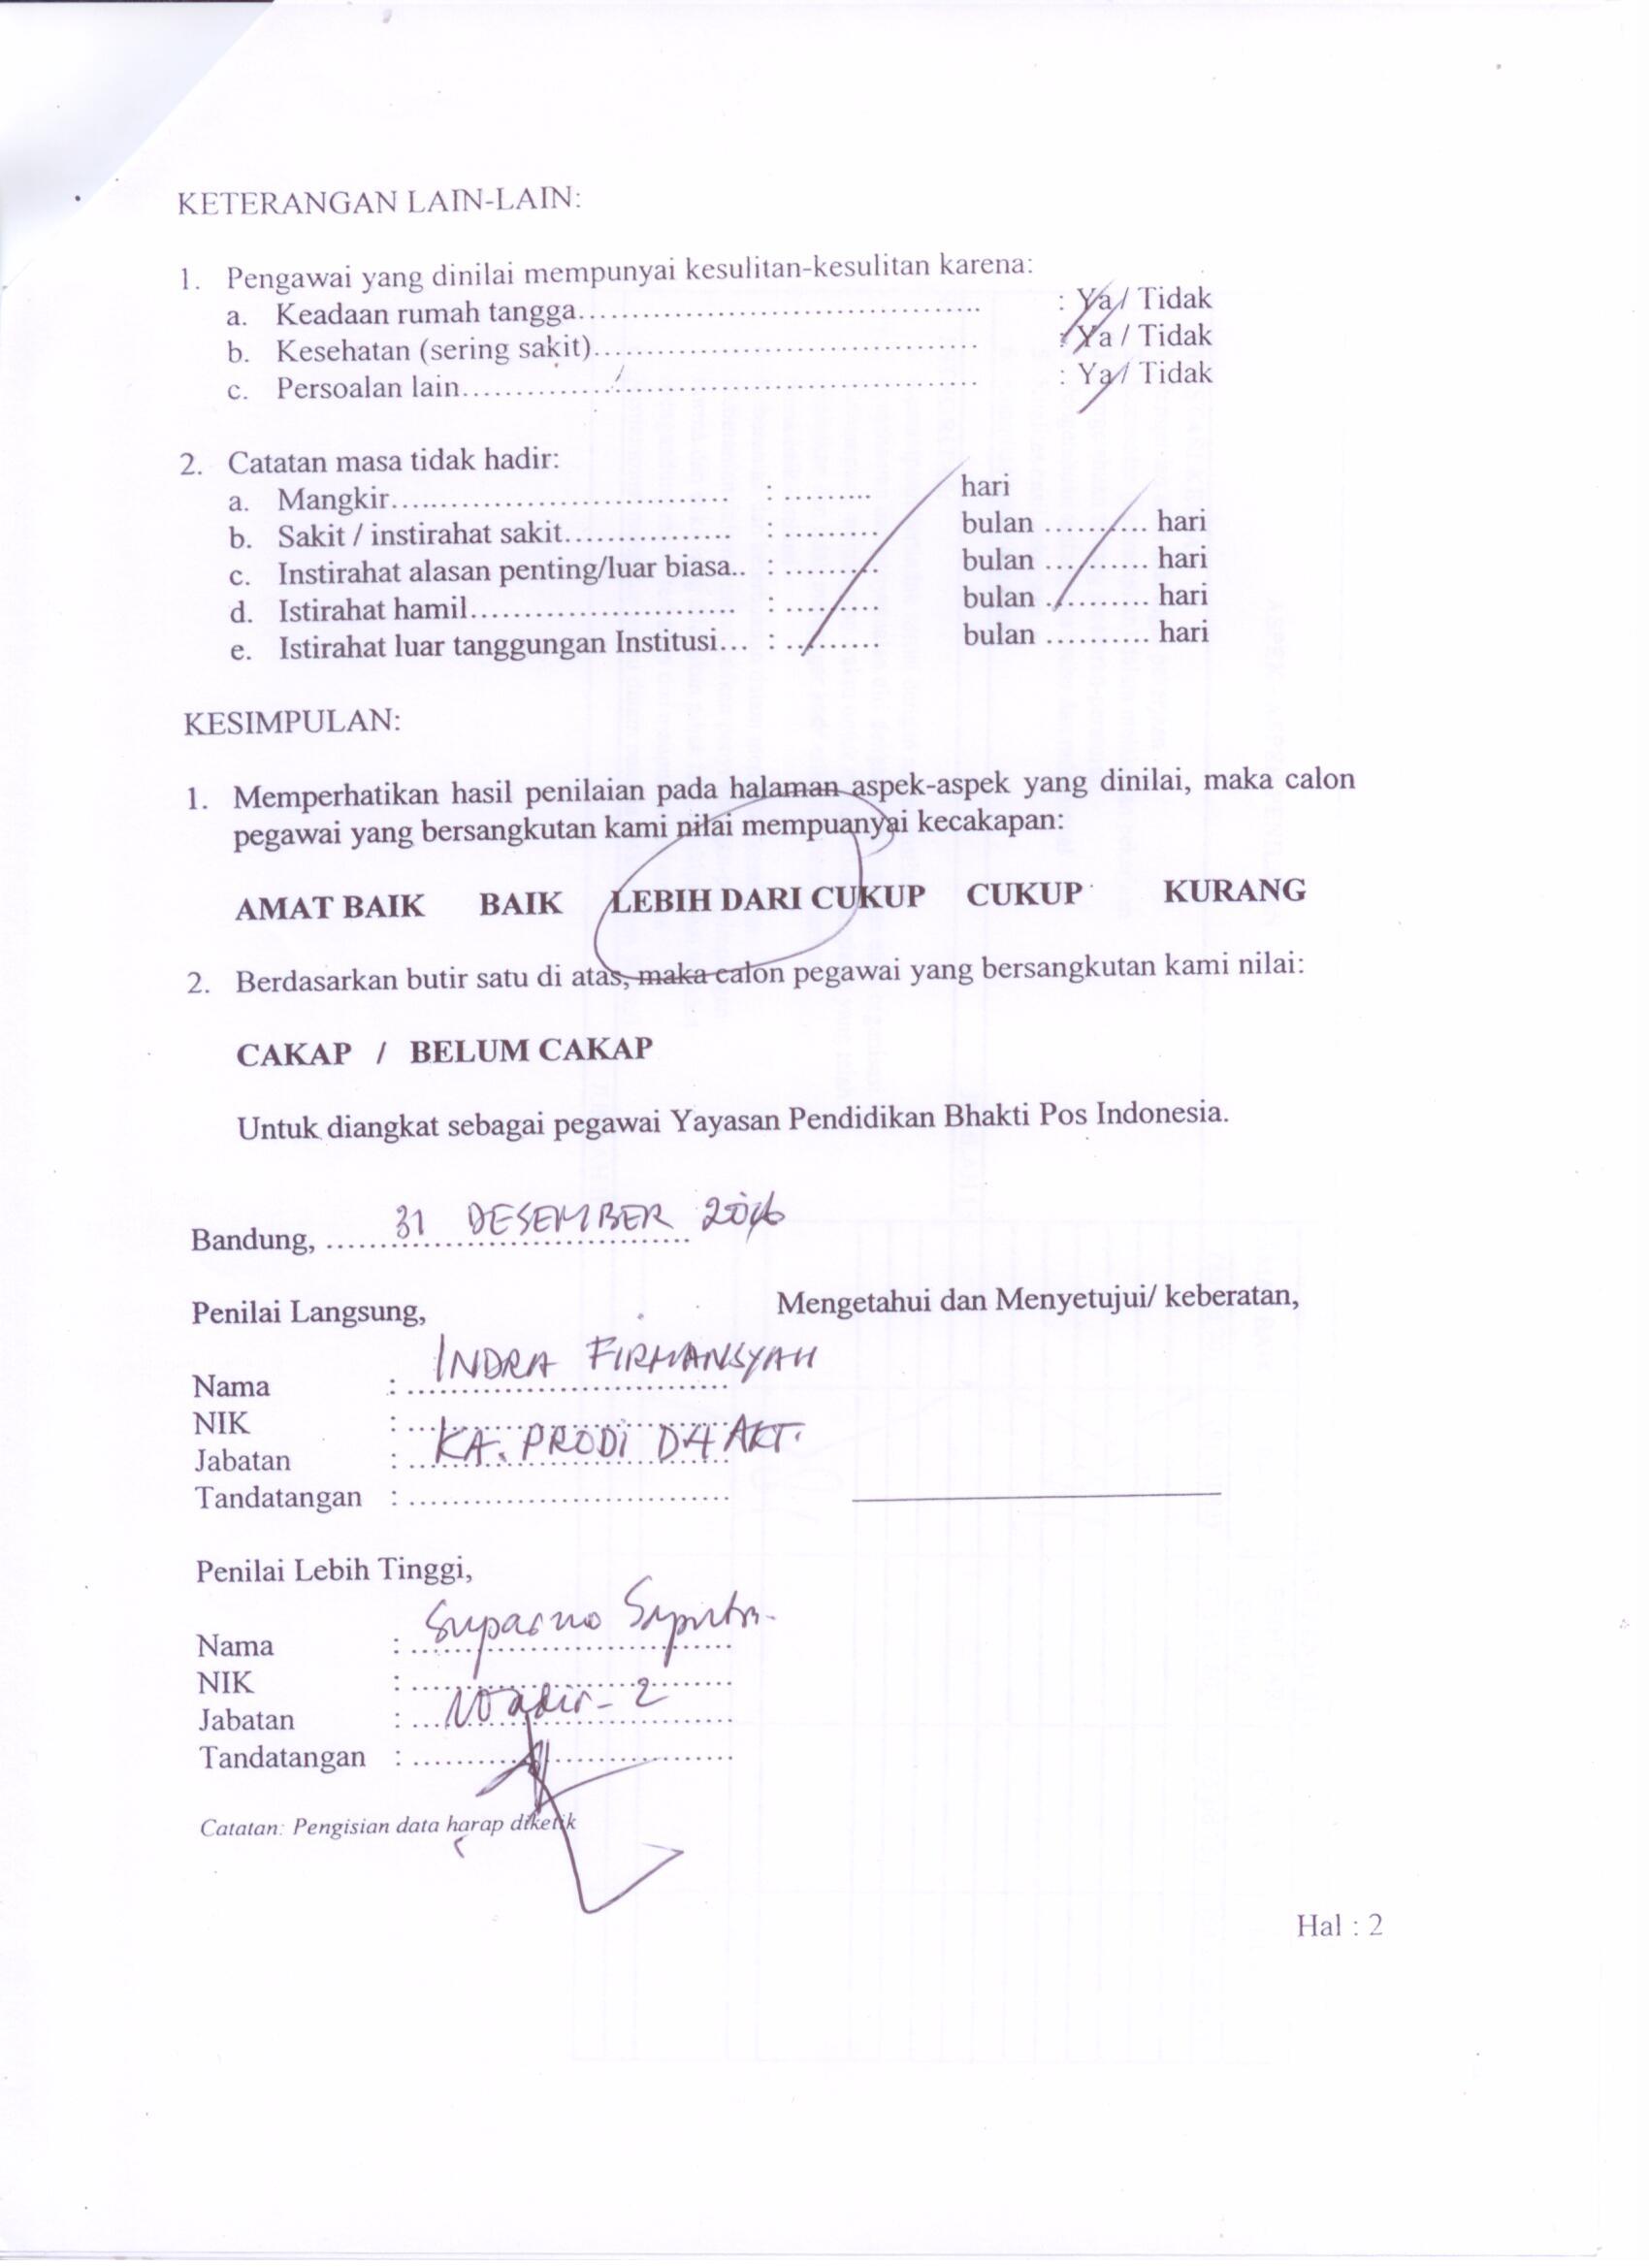 KETERANGAN LAIN-LAIN:
1. Pengawai yang dinilai mempunyai kesulitan-kesulitan karena:
a. Keadaan rumah tangga..................................... : Ya / Tidak
b. Kesehatan (sering sakit)................................... : Ya / Tidak
c. Persoalan lain.................................................. : Ya / Tidak
2. Catatan masa tidak hadir:
a. Mangkir................................ : ......... hari
b. Sakit / instirahat sakit................ : ......... bulan .......... hari
c. Instirahat alasan penting/luar biasa.. : ......... bulan .......... hari
d. Istirahat hamil......................... : ......... bulan .......... hari
e. Istirahat luar tanggungan Institusi... : ......... bulan .......... hari
KESIMPULAN:
1. Memperhatikan hasil penilaian pada halaman aspek-aspek yang dinilai, maka calon
pegawai yang bersangkutan kami nilai mempuanyai kecakapan:
AMAT BAIK BAIK LEBIH DARI CUKUP CUKUP KURANG
2. Berdasarkan butir satu di atas, maka calon pegawai yang bersangkutan kami nilai:
CAKAP / BELUM CAKAP
Untuk diangkat sebagai pegawai Yayasan Pendidikan Bhakti Pos Indonesia.
Bandung, 31 DESEMBER 2016
Penilai Langsung, Mengetahui dan Menyetujui/ keberatan,
Nama : INDRA FIRMANSYAH
NIK : ................................
Jabatan : KA. PRODI D4 AKT.
Tandatangan : ................................
Penilai Lebih Tinggi,
Nama : Suparno Saputra
NIK : ................................
Jabatan : Wadir-2
Tandatangan : ................................
Catatan: Pengisian data harap diketik
Hal : 2